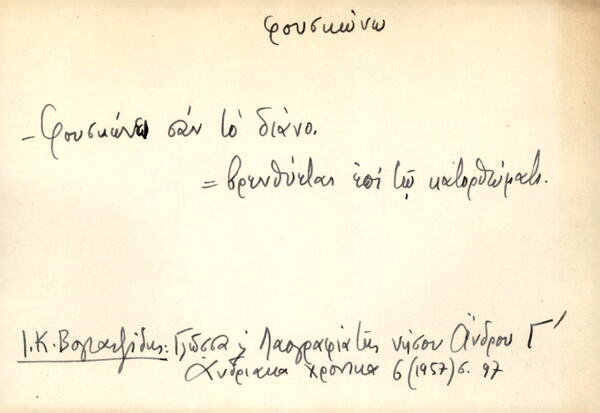 φουσκώνω
- Φουσκώνει σάν τό διάνο.
= βρενθύεται ἐπί τῷ κατορθώματι.
Ι.Κ. Βογιατζίδης: Γλῶσσα & Λαογραφία τῆς νήσου Ἄνδρου Γ'
Ἀνδριακά χρονικά 6 (1957) σ. 97